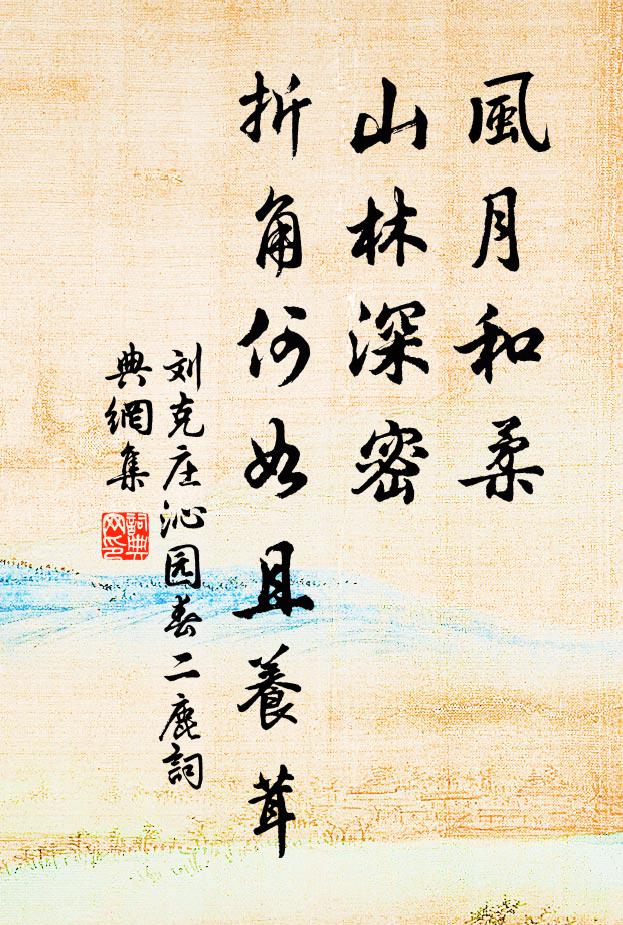 風月和柔
山林深密
折角何如且養茸
刘克庄沁园春二鹿詞
典網集
詞典網印